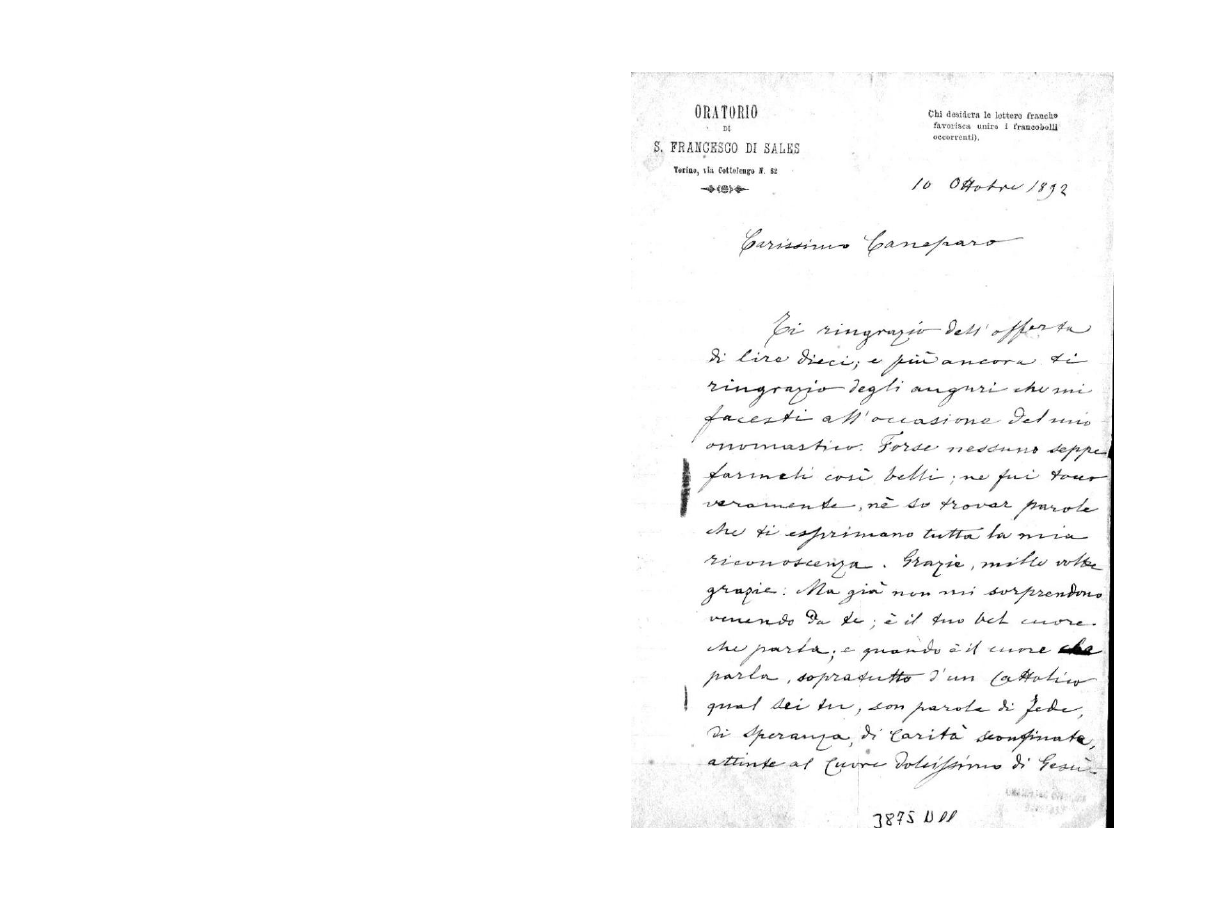 ORATORIO
DI
S. FRANCESCO DI SALES
Torino, via Cottolengo N. 32
Chi desidera le lettere franche
favorisca unire i francobolli
occorrenti).
10 Ottobre 1892
Carissimo Caneparo
Ti ringrazio dell'offerta
di lire dieci; e più ancora ti
ringrazio degli auguri che mi
facesti all'occasione del mio
onomastico. Forse nessuno seppe
farmeli così belli; ne fui tocco
veramente, nè so trovar parole
che ti esprimano tutta la mia
riconoscenza. Grazie, mille volte
grazie: Ma già non mi sorprendono
venendo da te; è il tuo bel cuore
che parla; e quando è il cuore che
parla, sopratutto d'un Cattolico
qual sei tu, son parole di Fede,
di Speranza, di Carità sconfinata,
attinte al Cuore dolcissimo di Gesù
3875